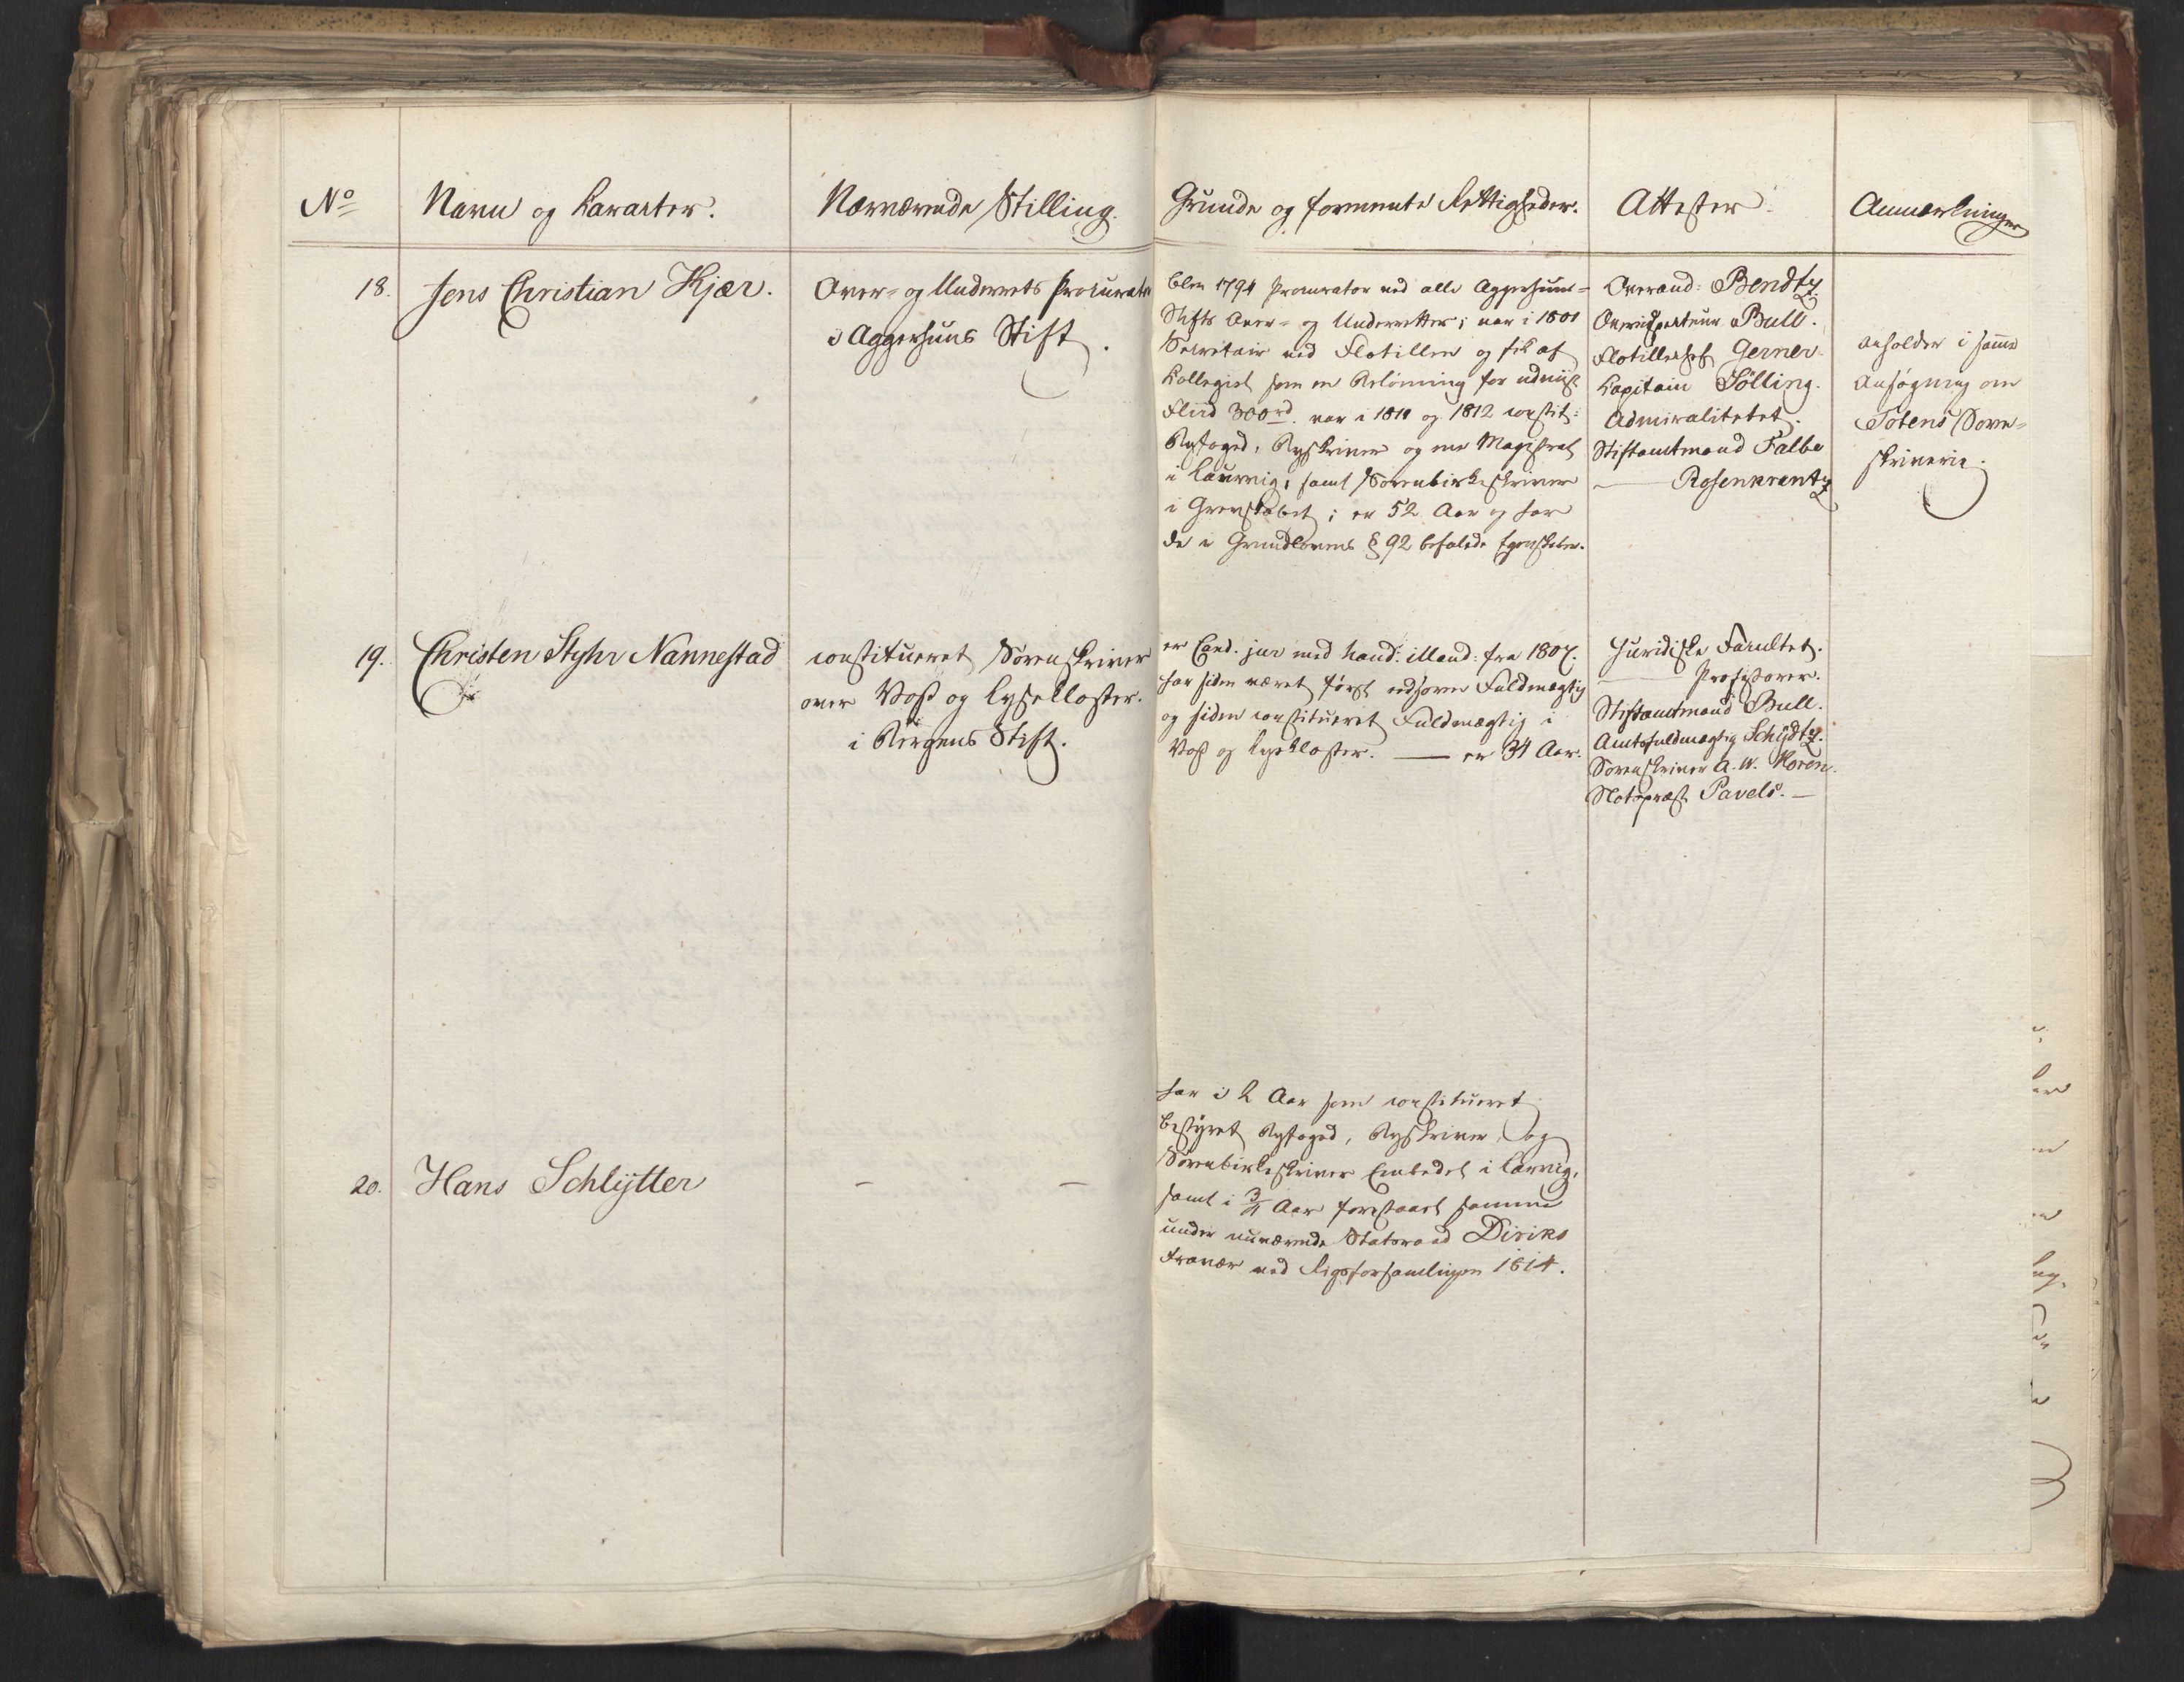 No
Navn og Karakter.
Nærværende Stilling.
Grunde og formente Rettigheder.
Attester.
Anmærkninger
18.
Jens Christian Kjær.
Over- og Underrets Procurator
i Aggershuus Stift.
blev 1794 Procurator ved alle Aggershuus-
Stifts Over- og Underretter; var i 1801
Secretair ved Flotillen og fik af
Kollegiet som en Belönning for udviist
Fliid 300 rd. var i 1811 og 1812 constit:
Byfoged, Byskriver og een Magistrat
i Laurvig, samt Sorenbirkeskriver
i Grevskabet; er 52 Aar og har
de i Grundlovens § 92 befalede Egenskaber.
Overaud: Bendtz.
Overinspecteur Bull.
Flotillechef Gerner.
Capitain Sölling.
Admiralitetet.
Stiftamtmand Falbe
— Rosenkrantz
anholder i samme
Ansögning om
Totens Soren-
skriverie.
19.
Christen Styhr Nannestad
constitueret Sorenskriver
over Voss og Lysekloster.
i Bergens Stift.
er Cand. jur med haud: illaud: fra 1807.
har siden været först edsvoren Fuldmægtig
og siden constitueret Fuldmægtig i
Voss og Lysekloster. — er 34 Aar.
Juridiske Facultet.
— Professorer.
Stiftamtmand Bull.
Amtsfuldmægtig Schydtz.
Sorenskriver A. W. Koren.
Slotspræst Pavels. —
20.
Hans Schlytter
— —
har i 2 Aar som constitueret
bestyret Byfoged, Byskriver og
Sorenbirkeskriver Embedet i Larvig,
samt i 3/4 Aar forestaaet samme
under nuværende Statsraad Diriks
Fravær ved Rigsforsamlingen 1814.